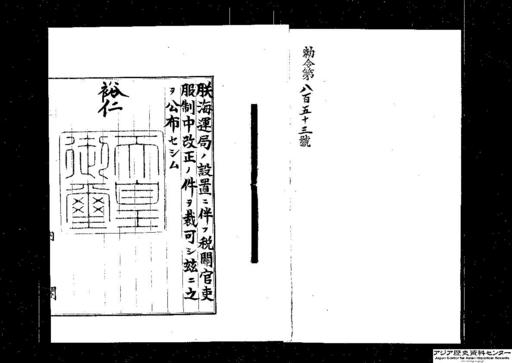 勅令第八百五十三號
朕海運局ノ設置ニ伴フ税關官吏
服制中改正ノ件ヲ裁可シ玆ニ之
ヲ公布セシム
裕仁
天皇
御璽
内閣
アジア歴史資料センター
Japan Center for Asian Historical Records